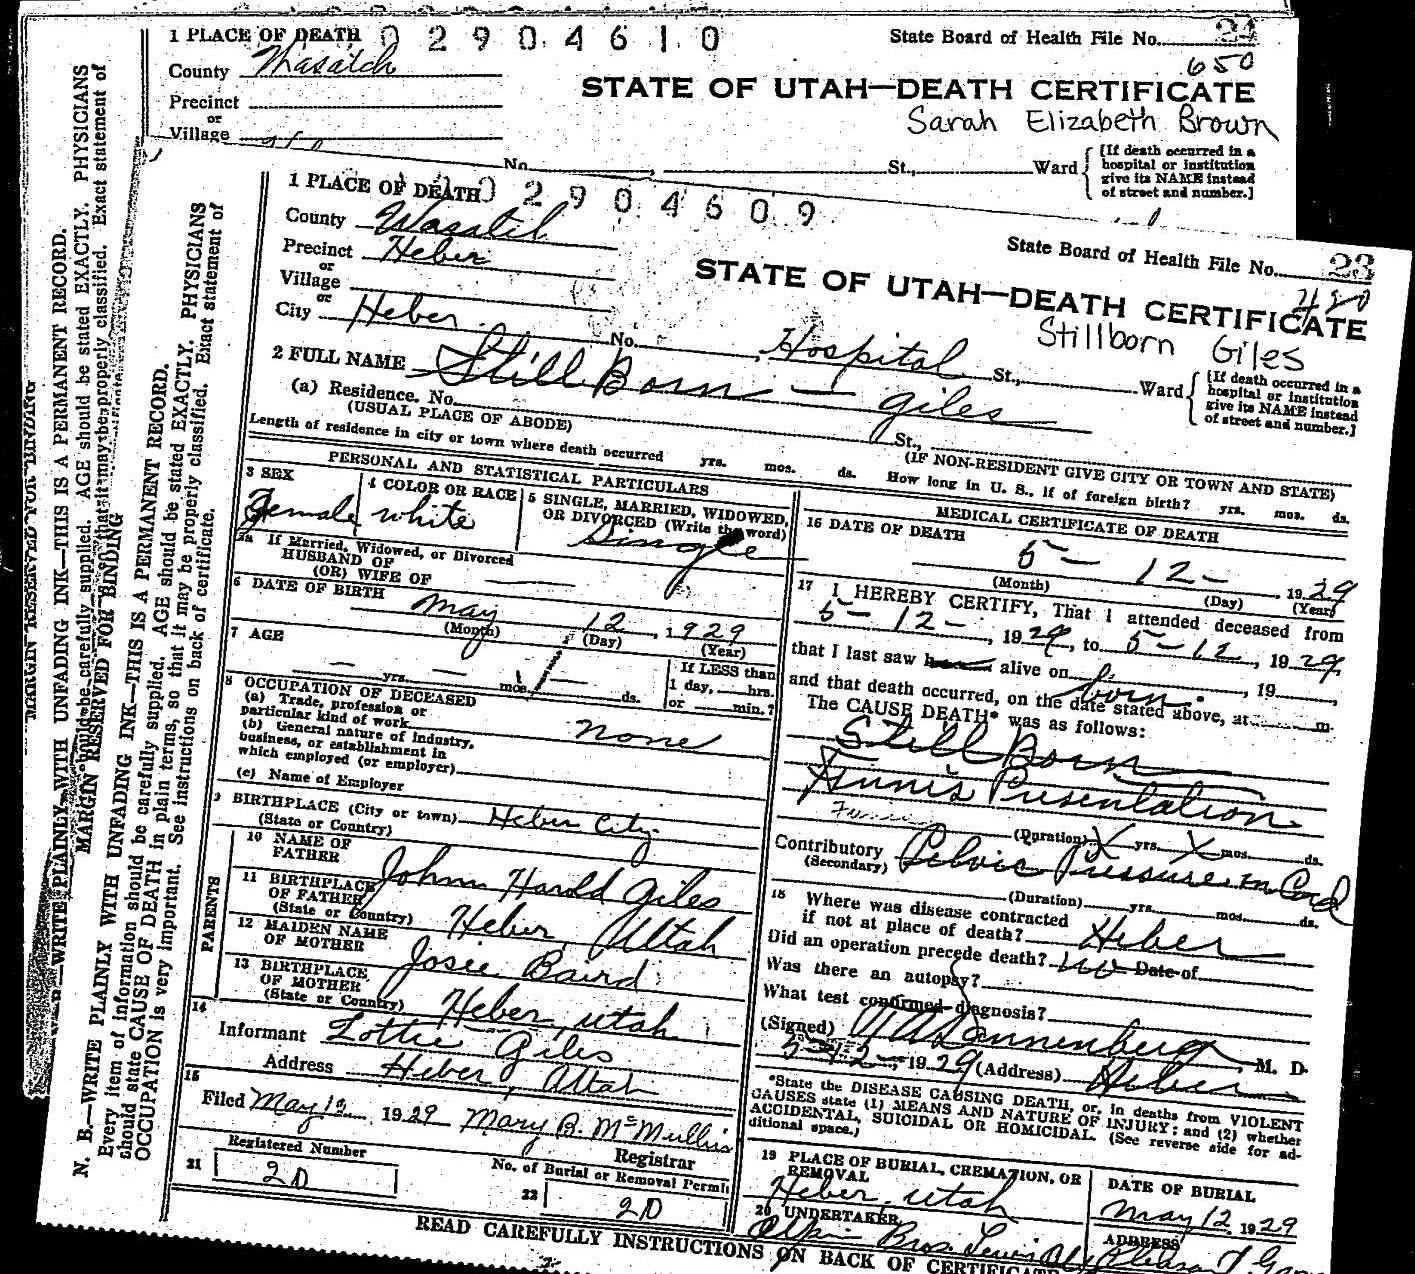 1 PLACE OF DEATH 0 2 9 0 4 6 1 0
State Board of Health File No. 24
650
County Wasatch
STATE OF UTAH—DEATH CERTIFICATE
Precinct
or
Village
Sarah Elizabeth Brown
No. St., Ward
[If death occurred in a
hospital or institution
give its NAME instead
of street and number.]
1 PLACE OF DEATH 0 2 9 0 4 6 0 9
State Board of Health File No. 23
County
Precinct Heber
or
Village
or
City Heber
STATE OF UTAH—DEATH CERTIFICATE
Stillborn Giles
No. Hospital St., Ward
[If death occurred in a
hospital or institution
give its NAME instead
of street and number.]
2 FULL NAME Still Born — Giles
(a) Residence. No. St.,
(USUAL PLACE OF ABODE)
(IF NON-RESIDENT GIVE CITY OR TOWN AND STATE)
Length of residence in city or town where death occurred yrs. mos. ds. How long in U. S., if of foreign birth? yrs. mos. ds.
PERSONAL AND STATISTICAL PARTICULARS
3 SEX
Female
4 COLOR OR RACE
white
5 SINGLE, MARRIED, WIDOWED,
OR DIVORCED (Write the word)
Single
5a If Married, Widowed, or Divorced
HUSBAND OF
(OR) WIFE OF
6 DATE OF BIRTH May 12, 1929
(Month) (Day) (Year)
7 AGE
yrs. mos. ds.
If LESS than
1 day, hrs.
or min.?
8 OCCUPATION OF DECEASED
(a) Trade, profession or
particular kind of work
(b) General nature of industry,
business, or establishment in
which employed (or employer)
none
(c) Name of Employer
9 BIRTHPLACE (City or town) Heber City
(State or Country)
PARENTS
10 NAME OF
FATHER
John Harold Giles
11 BIRTHPLACE
OF FATHER
(State or Country)
Heber, Utah
12 MAIDEN NAME
OF MOTHER
Josie Baird
13 BIRTHPLACE
OF MOTHER
(State or Country)
Heber, Utah
14
Informant Lottie Giles
Address Heber, Utah
15
Filed May 1929 Mary B. McMullin
Registrar
Registered Number
21 20
No. of Burial or Removal Permit
22 20
MEDICAL CERTIFICATE OF DEATH
16 DATE OF DEATH
5 — 12 — , 1929
(Month) (Day) (Year)
17 I HEREBY CERTIFY, That I attended deceased from
5 - 12 - , 1929, to 5 - 12, 1929,
that I last saw alive on , 19 ,
born.
and that death occurred, on the date stated above, at m.
The CAUSE DEATH* was as follows:
Still Born
Presentation
(Duration) X yrs. X mos. ds.
Contributory Pelvic Pressure on Cord
(Secondary)
(Duration) yrs. mos. ds.
18 Where was disease contracted
if not at place of death? Heber
Did an operation precede death? no Date of
Was there an autopsy?
What test confirmed diagnosis?
(Signed) , M. D.
5-12-, 1929 (Address) Heber
*State the DISEASE CAUSING DEATH, or, in deaths from VIOLENT
CAUSES state (1) MEANS AND NATURE OF INJURY; and (2) whether
ACCIDENTAL, SUICIDAL OR HOMICIDAL. (See reverse side for ad-
ditional space.)
19 PLACE OF BURIAL, CREMATION, OR
REMOVAL
Heber, Utah
DATE OF BURIAL
May 12 1929
20 UNDERTAKER
ADDRESS
READ CAREFULLY INSTRUCTIONS ON BACK OF CERTIFICATE
MARGIN RESERVED FOR BINDING
N. B.—WRITE PLAINLY WITH UNFADING INK—THIS IS A PERMANENT RECORD.
Every item of information should be carefully supplied. AGE should be stated EXACTLY. PHYSICIANS
should state CAUSE OF DEATH in plain terms, so that it may be properly classified. Exact statement of
OCCUPATION is very important. See instructions on back of certificate.